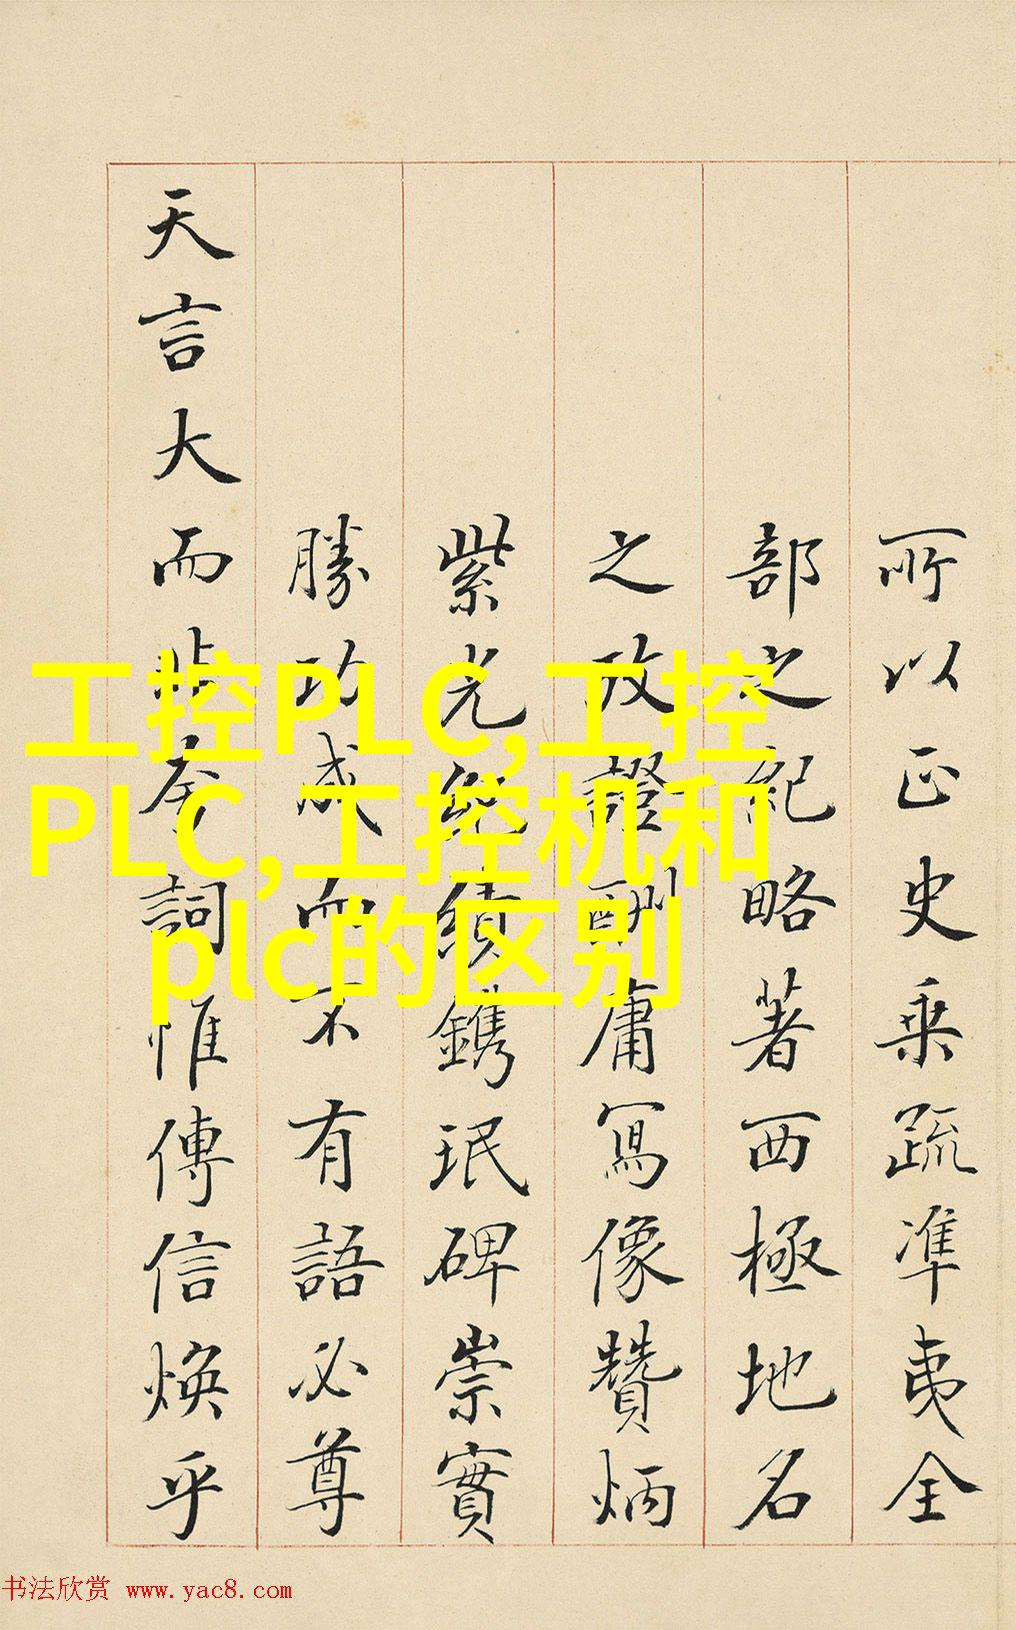 所以正史乘疏準夷全
部之紀略著西極地名
之攷證酬庸寫像贊炳
紫光績鐫珉碑崇實
勝功成而不有語必尊
天言大而非夸詞惟傳信煥乎
工控PLC,工控
PLC,工控机和
plc的区别
书法欣赏 www.yac8.com